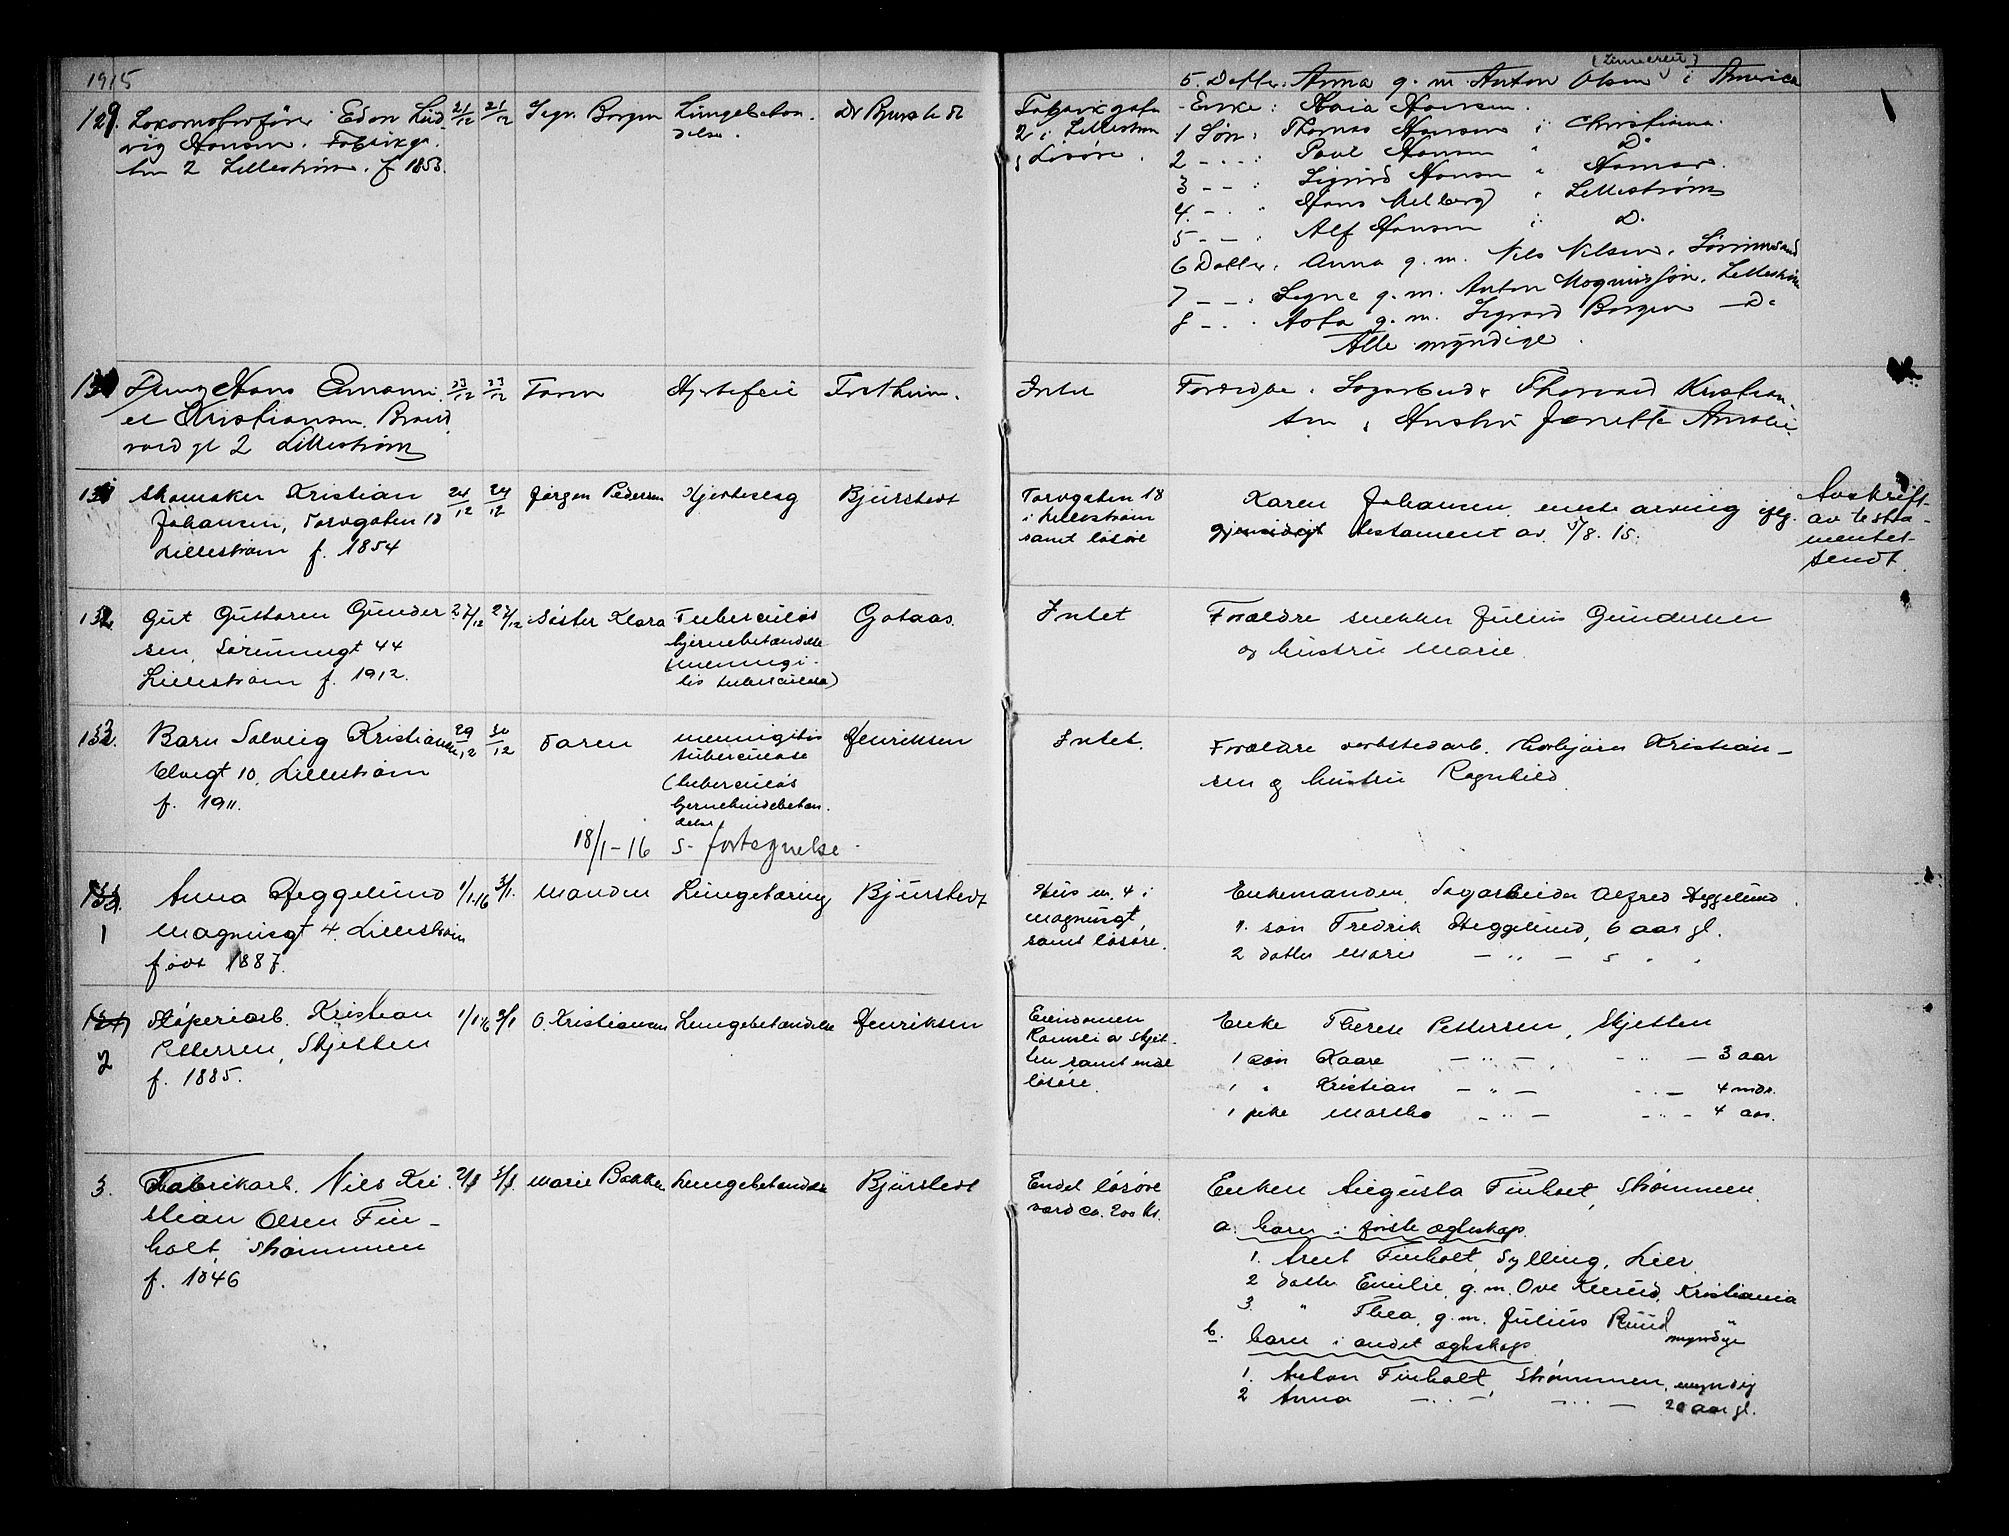 1915
5. Datter: Anna g. m. Anton Olsen i America
129. Lokomotivfører Edon Lud-
vig Hansen. Fabrikga-
ten 2 Lillestrøm. f 1853.
21/12 21/12 Sign. Borgen
Lungebetæn-
delse.
Dr Bjurstedt
Fabrikgaten
2 i Lillestrøm
Løsøre.
- Enke: Maia Hansen.
1 Søn: Thomas Hansen i Christiania.
2 - - - : Paul Hansen " Do
3 - - : Sigurd Hansen " Hamar.
4. - . " Hans Melberg " Lillestrøm
5 - - : Alf Hansen i D.
6 Datter: Anna g. m. Nils Nilsen, Sørumsand
7 - - : Signe g. m. Anton Magnussøn, Lillestrøm
8 - . . Aasta g. m. Sigvard Borgen - Do
Alle myndige.
130 Dreng Hans Emanu-
el Kristiansen Brand
vold gt 2 Lillestrøm
23/12 23/12 Faren Hjertefeil Fretheim.
Intet
Forældre: Sagarbeider Thorvald Kristian-
sen, Hustru Janette Amalie
131 Skomaker Kristian
Johansen, Torvgaten 18
Lillestrøm f. 1854
24/12 24/12 Jørgen Pedersen Hjerteslag Bjurstedt
Torvgaten 18
i Lillestrøm
samt løsøre
Karen Johansen eneste arving iflg.
gjensidigt testament av 5/8. 15.
Avskrift
av testa-
mentet
sendt
132 Gut Guttoren Gunder
sen, Sørumsgt 44
Lillestrøm f. 1912.
27/12 27/12 Søster Klara
Tuberculøs
hjernebetændelse
(meningi-
tis tuberculosa)
Gotaas.
Intet
Forældre snekker Julius Gundersen
og hustru Marie
133. Barn Solveig Kristiansen
Elvegt 10, Lillestrøm
f. 1911.
29/12 30/12 Faren
meningitis
tuberculose
(tuberculøs
hjernehindebetæn
delse
Henriksen
Intet.
Forældre verkstedarb. Torbjørn Kristian-
sen og hustru Ragnhild
18/1-16 s- fortegnelse.
133.
1
Anna Heggelund
Magnusgt 4. Lillestrøm
født 1887.
1/1.16 3/1. Manden Lungetæring Bjurstedt
Hus nr. 4 i
Magnusgt,
samt løsøre.
Enkemanden, Sagarbeider Alfred Heggelund.
1. søn Fredrik Heggelund, 6 aar gl.
2 datter Marie - " - 5 " "
134
2
Støperiarb. Kristian
Pettersen, Skjetten
f. 1885.
1/1 16 3/1 O. Kristiansen Lungebetændelse Henriksen
Eiendommen
av Skjet-
ten samt endel
løsøre.
Enke Therese Pettersen, Skjetten
1 søn Kaare - " - - " - 3 aar
1 " Kristian - " - - " - 4 mdr.
1 pike Martha - " - - " - 4 aar.
3. Fabrikarb. Nils Kri
stian Olsen Fin-
holt, Strømmen
f. 1846
2/1 3/1. Marie Bakken Lungebetændelse Bjurstedt
Endel løsøre
værd ca. 200 kr.
Enken Augusta Finholt, Strømmen.
a. barn i første egteskap.
1. Arnt Finholt, Sylling, Lier.
2 datter Emilie, g. m. Ove Knud, Kristiania
3. " Thea, g. m. Julius Ruud "
myndige
b. barn i andet egteskap
1. Anton Finholt, Strømmen, myndig
2 Anna - " - - " - 20 aar gl.